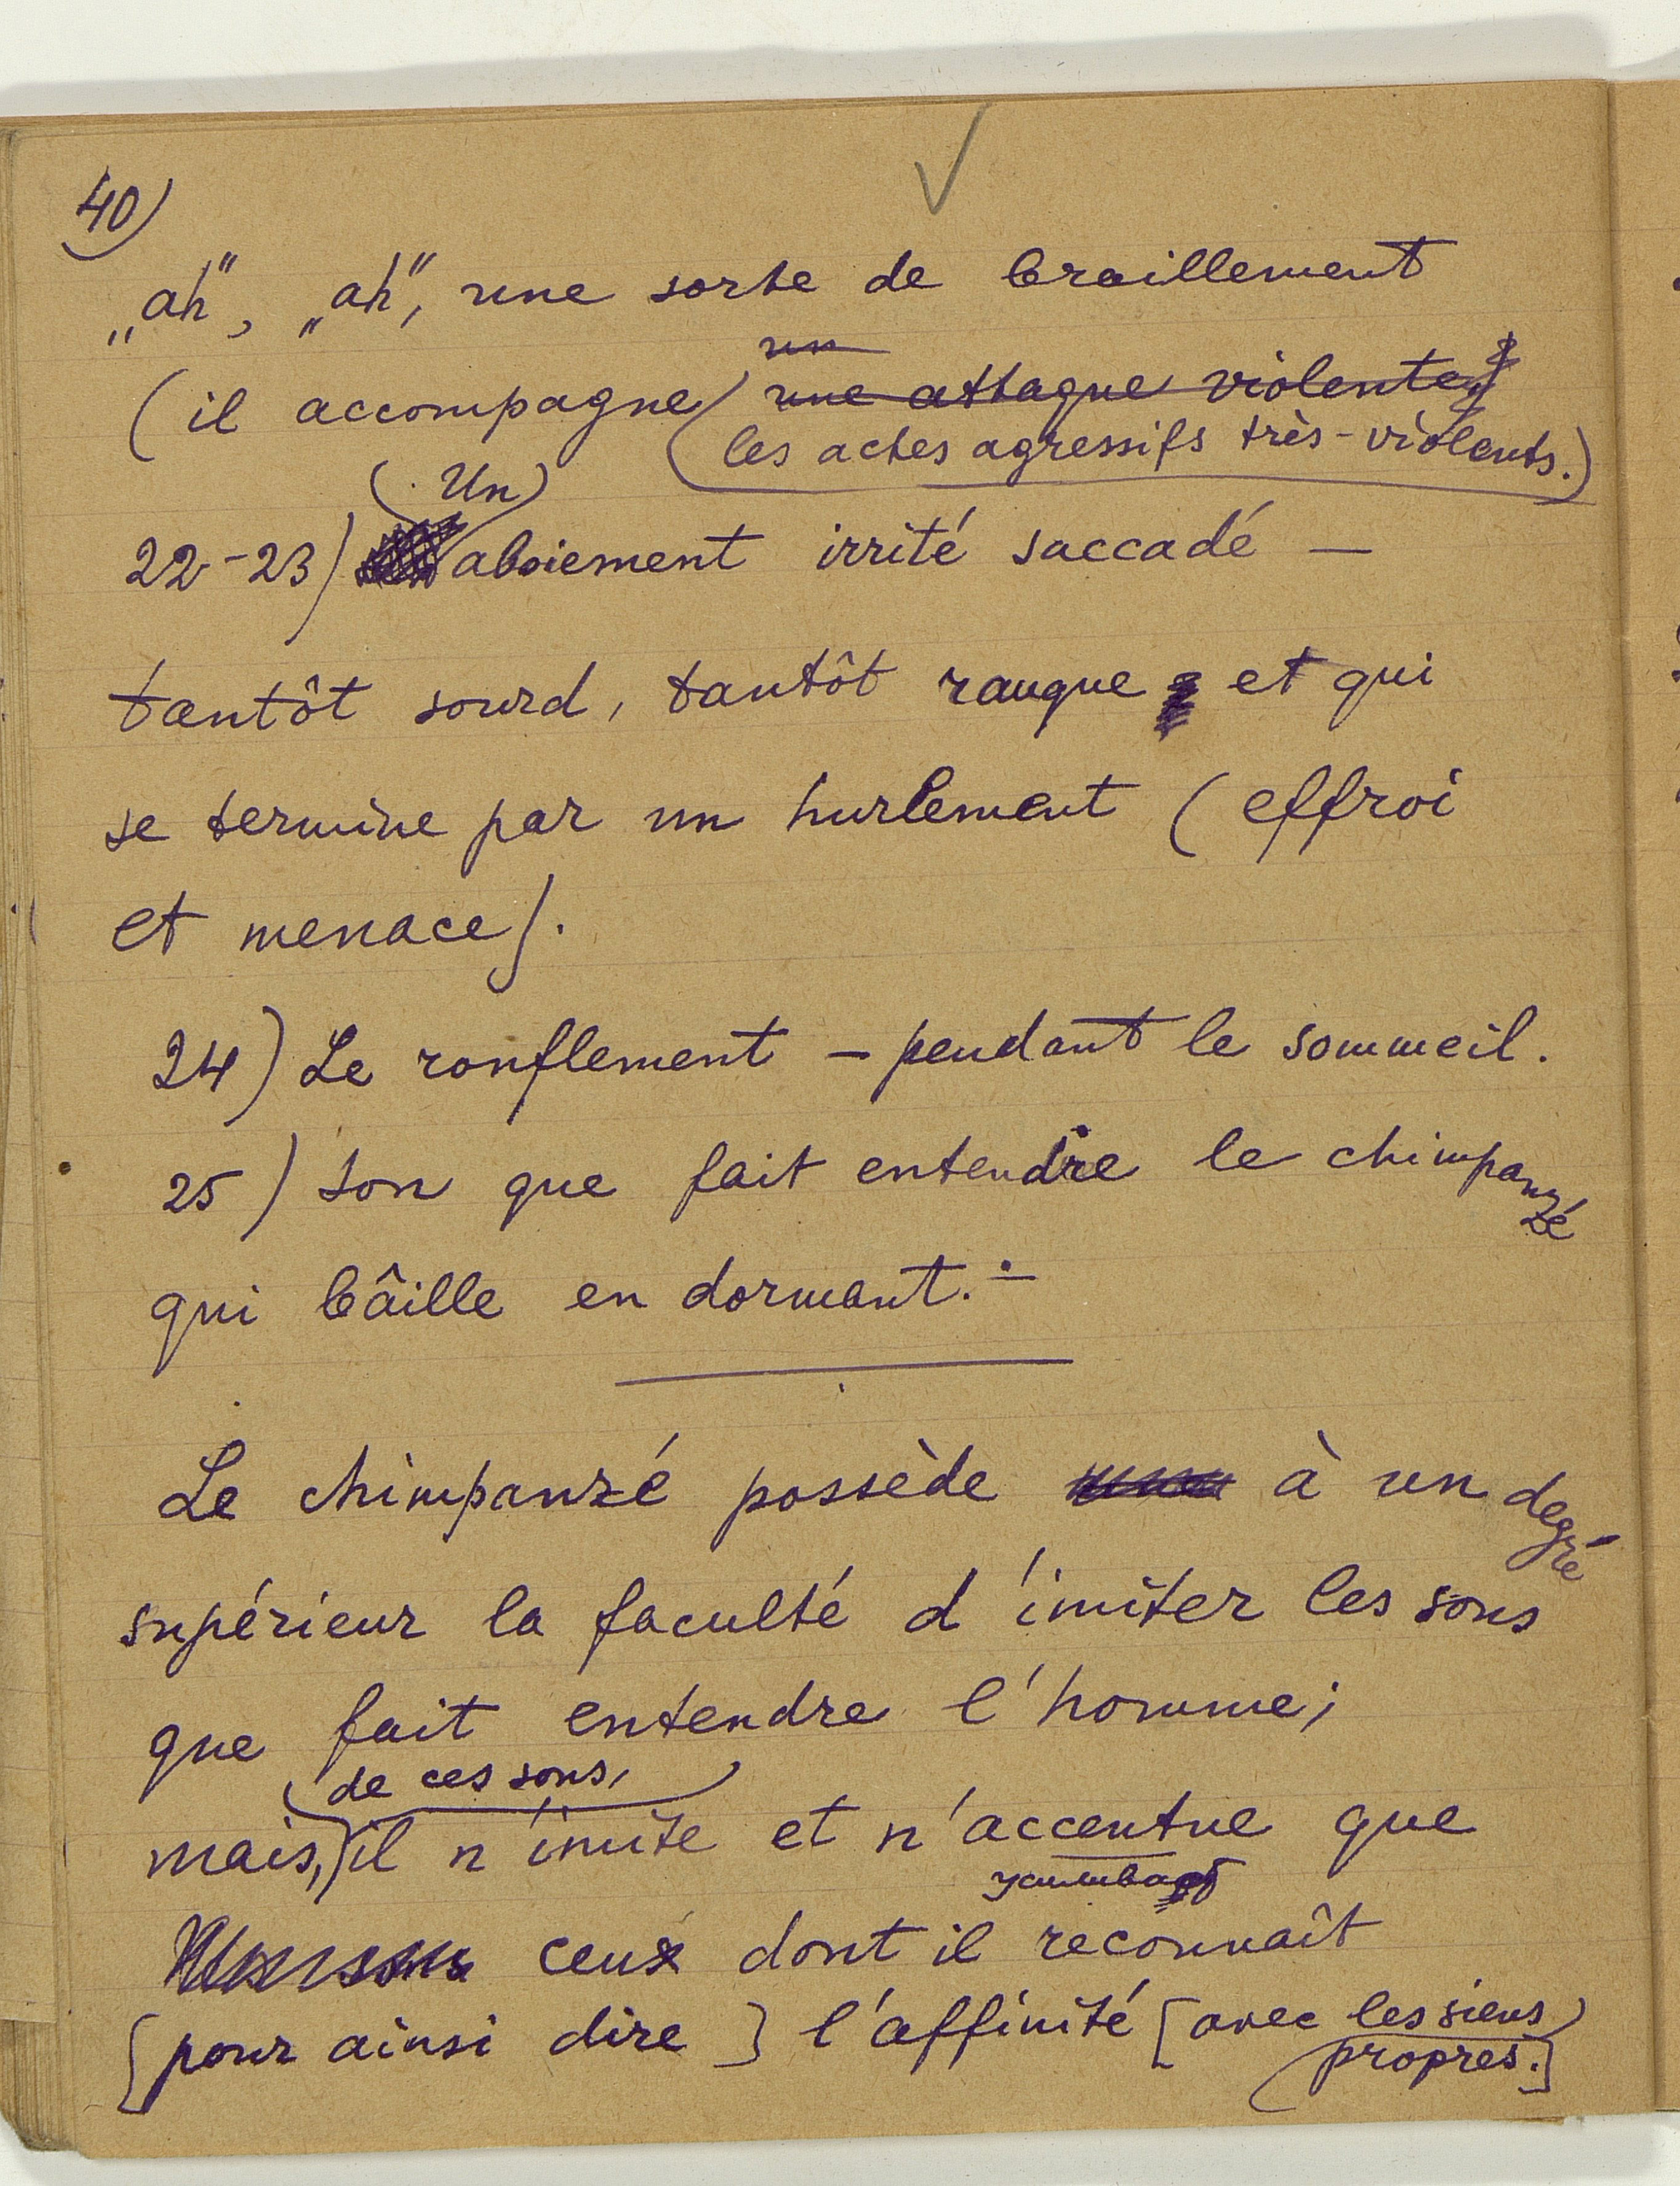 40)
„ah”, „ah”, une sorte de braillement
un
(il accompagne une attaque violente)
les actes agressifs très-violents.)
(Un)
22-23) aboiement irrité saccadé —
tantôt sourd, tantôt rauque et qui
se termine par un hurlement (effroi
et menace).
24) Le ronflement — pendant le sommeil.
25) Son que fait entendre le chimpanzé
qui bâille en dormant. —
Le chimpanzé possède à un degré
supérieur la faculté d'imiter les sons
que fait entendre l'homme;
de ces sons,
mais, il n'imite et n'accentue que
ceux dont il reconnaît
[pour ainsi dire] l'affinité [avec les siens
propres.]